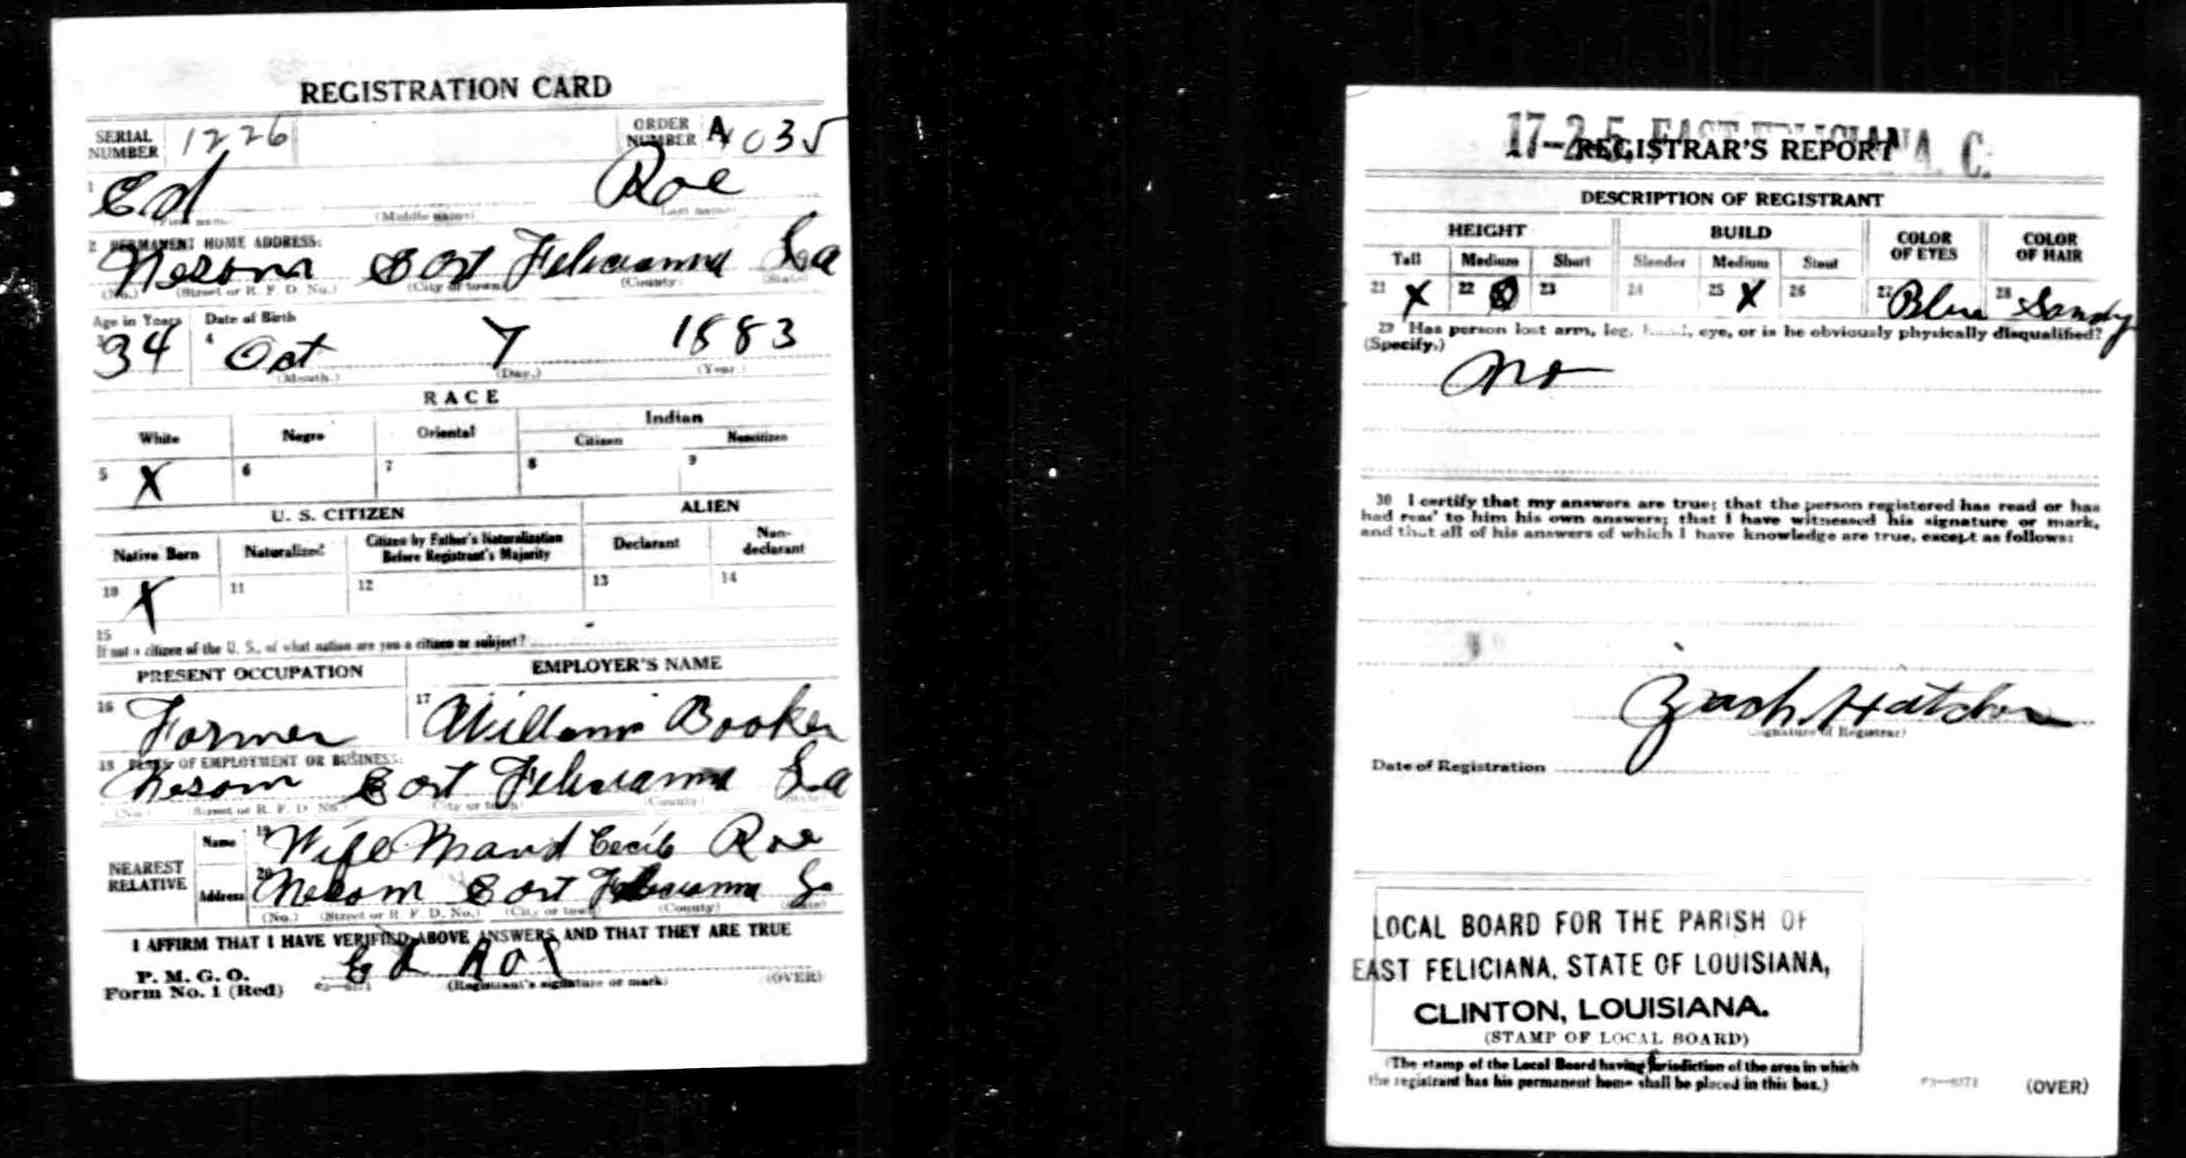 REGISTRATION CARD
SERIAL NUMBER 1226 ORDER NUMBER A 035
1 Ed Roe
(First name) (Middle name) (Last name)
2 PERMANENT HOME ADDRESS:
Nesom East Felicianna La
(No.) (Street or R. F. D. No.) (City or town) (County) (State)
Age in Years Date of Birth
3 34 4 Oct 7 1883
(Month.) (Day.) (Year.)
RACE
White Negro Oriental Indian
Citizen Noncitizen
5 X 6 7 8 9
U. S. CITIZEN ALIEN
Native Born Naturalized Citizen by Father's Naturalization Before Registrant's Majority Declarant Non-declarant
10 X 11 12 13 14
15
If not a citizen of the U. S., of what nation are you a citizen or subject?
PRESENT OCCUPATION EMPLOYER'S NAME
16 Farmer 17 Booker
18 PLACE OF EMPLOYMENT OR BUSINESS:
Nesom East Felicianna La
(No.) (Street or R. F. D. No.) (City or town) (County) (State)
NEAREST RELATIVE
Name 19 Wife Maud Cecile Roe
Address 20 Nesom East Felicianna La
(No.) (Street or R. F. D. No.) (City or town) (County) (State)
I AFFIRM THAT I HAVE VERIFIED ABOVE ANSWERS AND THAT THEY ARE TRUE
P. M. G. O.
Form No. 1 (Red) Ed Roe
(Registrant's signature or mark) (OVER)
17-2-5. EAST FELICIANA C.
REGISTRAR'S REPORT
DESCRIPTION OF REGISTRANT
HEIGHT BUILD COLOR OF EYES COLOR OF HAIR
Tall Medium Short Slender Medium Stout
21 X 22 23 24 25 X 26 27 Blue 28 Sandy
29 Has person lost arm, leg, hand, eye, or is he obviously physically disqualified?
(Specify.)
no
30 I certify that my answers are true; that the person registered has read or has
had read to him his own answers; that I have witnessed his signature or mark,
and that all of his answers of which I have knowledge are true, except as follows:
Zach
(Signature of Registrar)
Date of Registration
LOCAL BOARD FOR THE PARISH OF
EAST FELICIANA, STATE OF LOUISIANA,
CLINTON, LOUISIANA.
(STAMP OF LOCAL BOARD)
(The stamp of the Local Board having jurisdiction of the area in which
the registrant has his permanent home shall be placed in this box.)
(OVER)